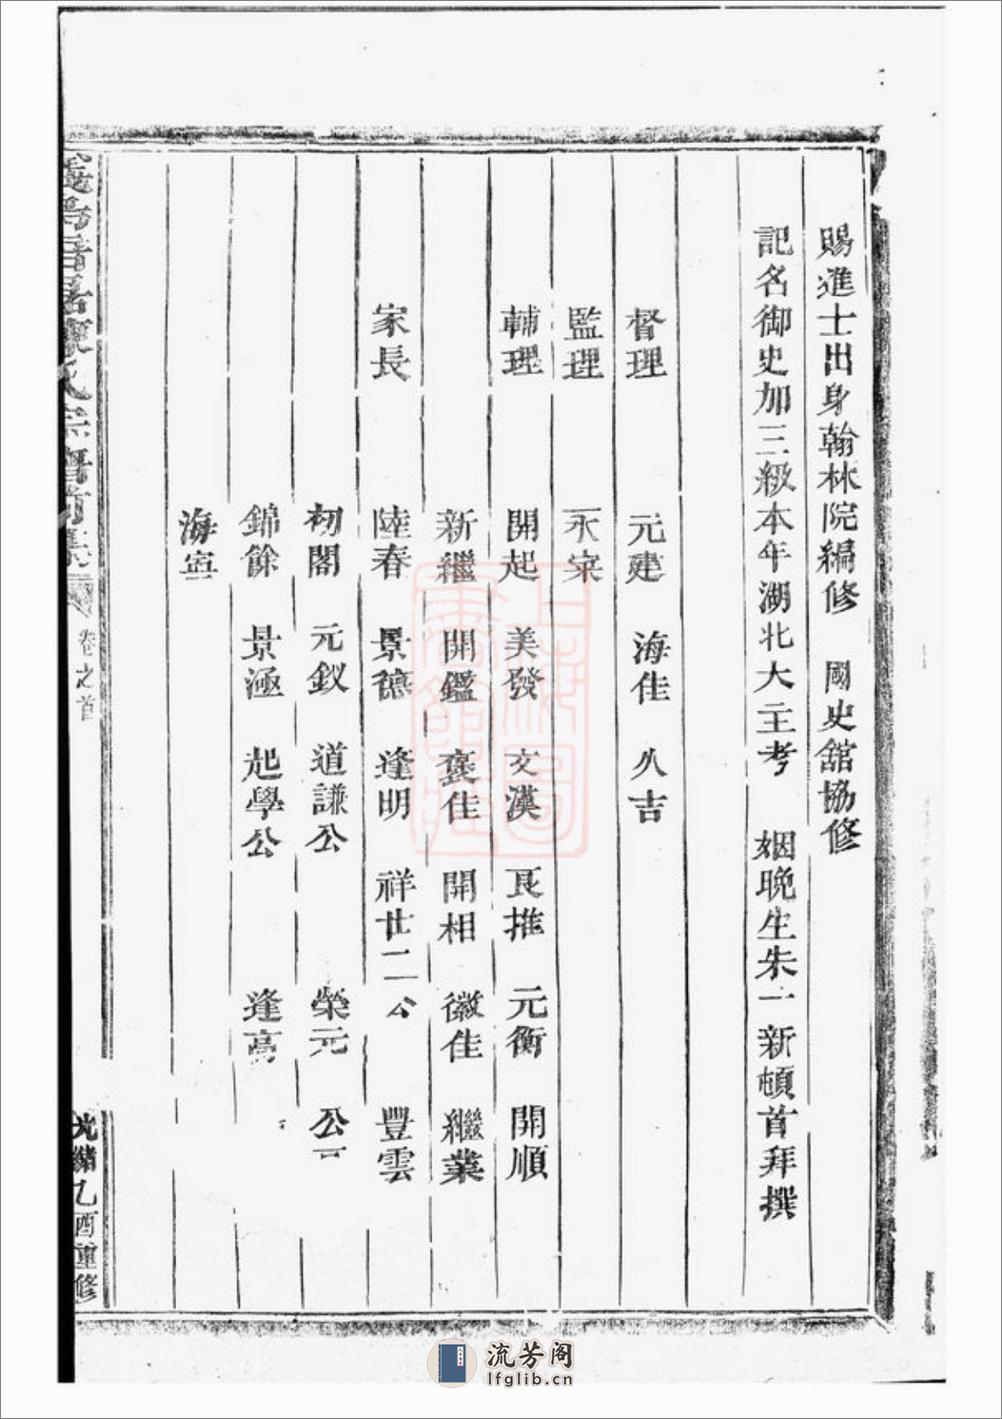 賜進士出身翰林院編修　國史館協修
記名御史加三級本年湖北大主考　姻晚生朱一新頓首拜撰
督理　元建　海佳　久吉
監理　永宋
輔理　開起　美發　文漢　艮推　元衡　開順
新繼　開鑑　褒佳　開相　徽佳　繼業
家長　陸春　景德　逢明　祥世二公　豐雲
初閣　元釵　道謙公　榮元　公
錦餘　景極　起學公　逢高
海寍
氏宗譜
卷之首
光緒乙酉重修
上海圖書館藏
流芳阁
lfglib.cn